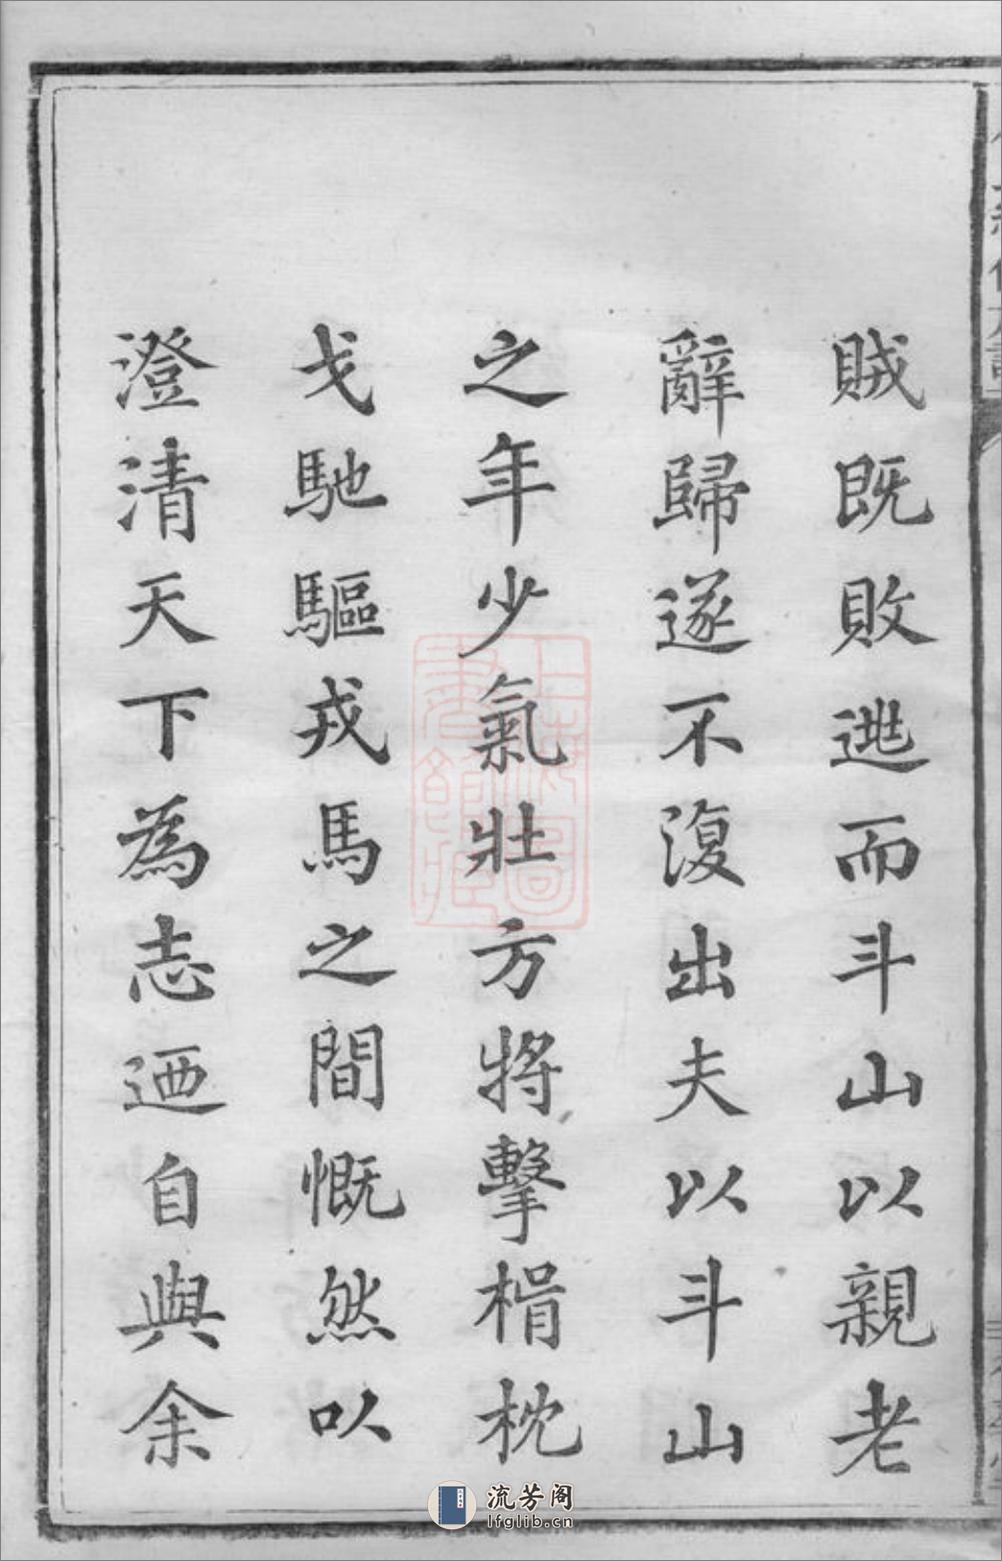 賊既敗逃而斗山以親老
辭歸遂不復出夫以斗山
之年少氣壯方將擊楫枕
戈馳驅戎馬之間慨然以
澄清天下為志迺自與余
流芳阁
lfglib.cn